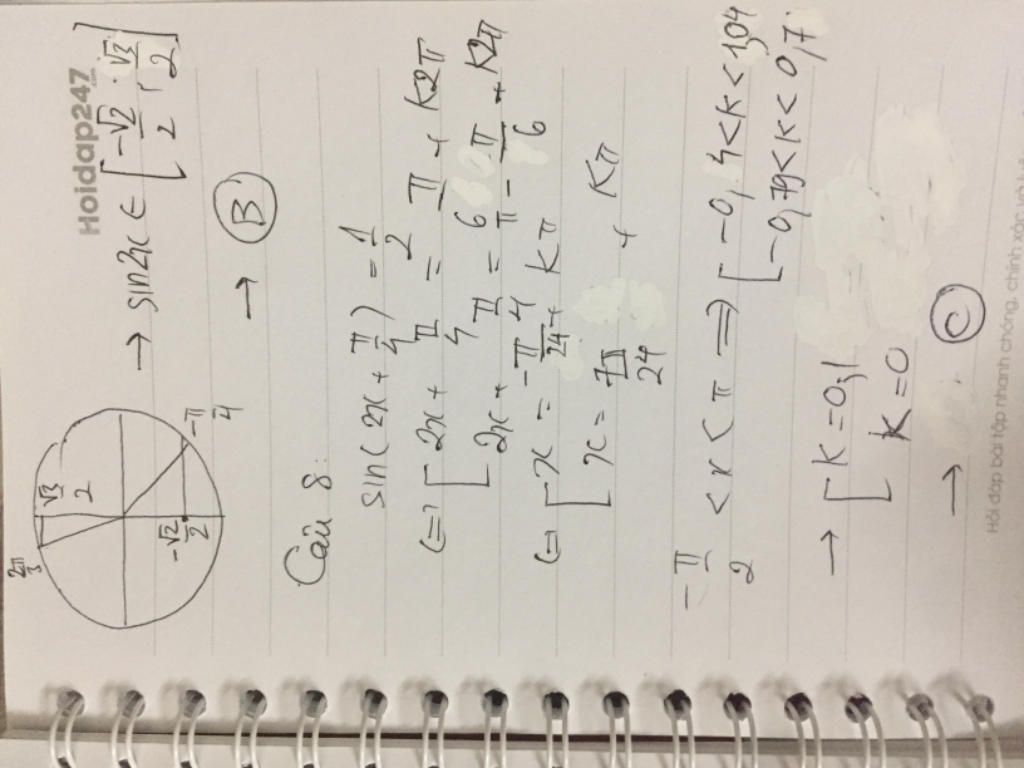 Hoidap247
.com
2π/3
√3/2
-√2/2
-π/4
→ sin2x ∈ [-√2/2; √3/2]
→ B
Câu 8:
sin(2x + π/4) = 1/2
(=) [ 2x + π/4 = π/6 + K2π
2x + π/4 = π - π/6 + K2π
(=) [ x = -π/24 + Kπ
x = 7π/24 + Kπ
-π/2 < x < π => [ -0,4<k<1,04
-0,79<k<0,7
→ [ K=0;1
K=0
→ C
Hỏi đáp bài tập nhanh chóng, chính xác và